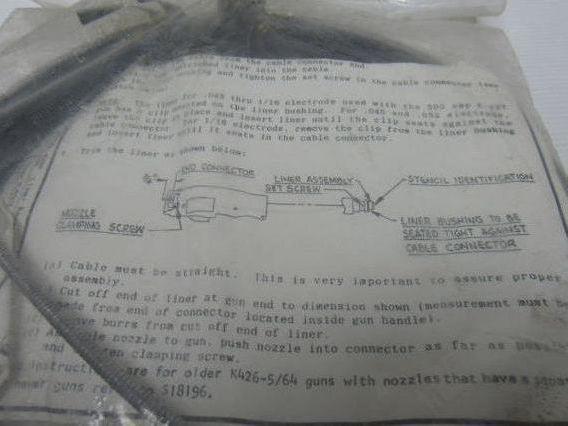 from the cable connector end.
liner into the cable
and tighten the set screw in the cable connector
NOTE: The liner for .045 thru 1/16 electrode used with the 500 amp
has a clip on the liner bushing. For .045 and .052 electrode,
leave the clip in place and insert liner until the clip seats against the
cable connector. For 1/16 electrode, remove the clip from the liner bushing
and insert liner until it seats in the cable connector.
Trim the liner as shown below:
END CONNECTOR
LINER ASSEMBLY
SET SCREW
STENCIL IDENTIFICATION
NOZZLE
CLAMPING SCREW
LINER BUSHING TO BE
SEATED TIGHT AGAINST
CABLE CONNECTOR
(a) Cable must be straight. This is very important to assure proper
assembly.
Cut off end of liner at gun end to dimension shown (measurement must be
made from end of connector located inside gun handle).
burrs from cut off end of liner.
nozzle to gun, push nozzle into connector as far as
and clamping screw.
are for older K426-5/64 guns with nozzles that have a
guns S18196.